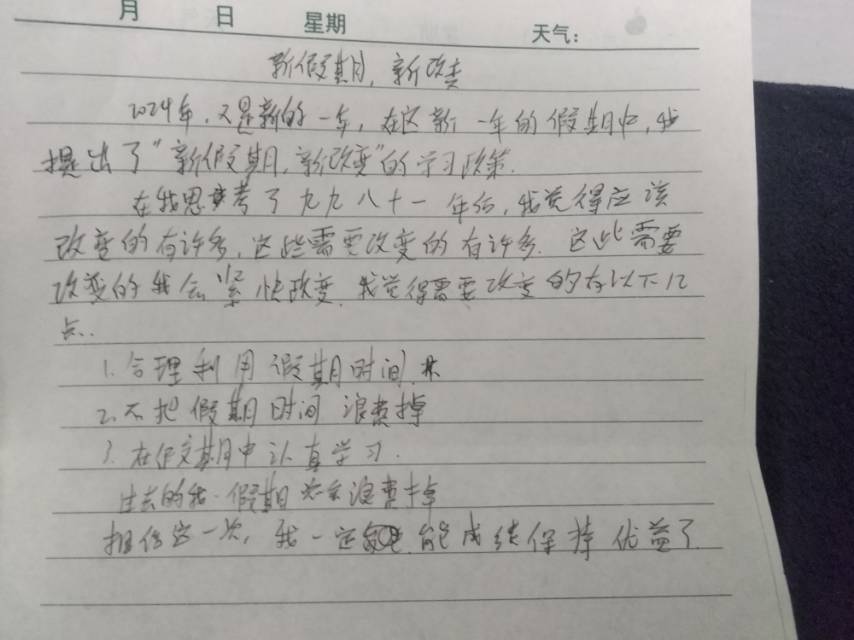 月 日 星期 天气:
新假期,新改变
2024年,又是新的一年,在这新一年的假期中,我
提出了“新假期,新改变”的学习政策.
在我思考了九九八十一年后,我觉得应该
改变的有许多,这些需要改变的有许多.这些需要
改变的我会紧快改变.我觉得需要改变的有以下几
点.
1.合理利用假期时间.
2.不把假期时间浪费掉
3.在假期中认真学习.
过去的我.假期总会浪费掉
相信这一次,我一定能成绩保持优益了